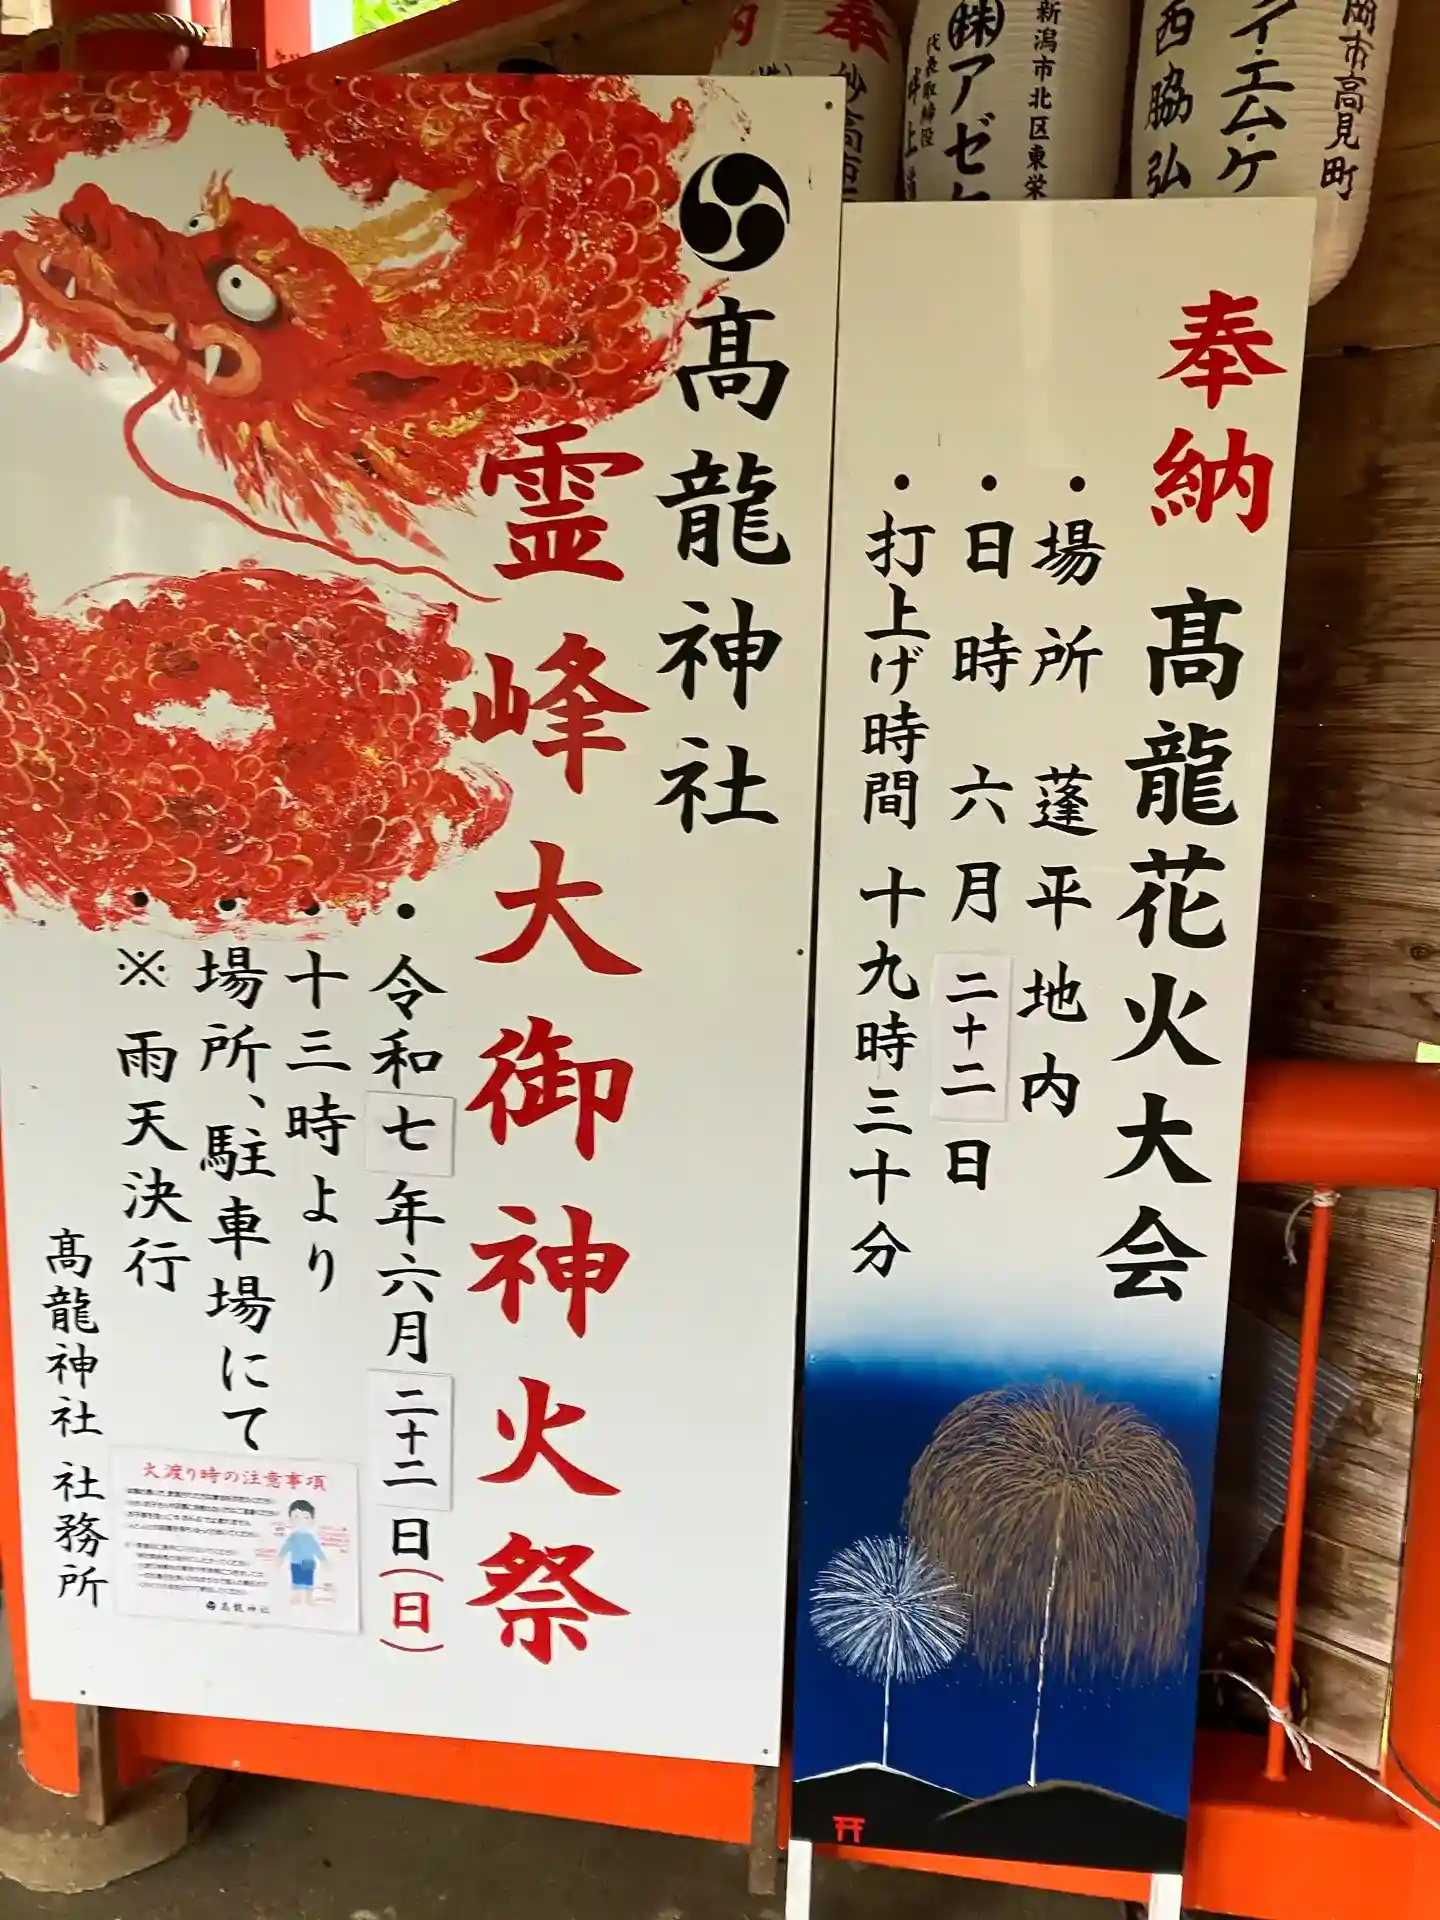 奉納 髙龍花火大会
・場所 蓬平地内
・日時 六月二十二日
・打上げ時間 十九時三十分
髙龍神社
霊峰大御神火祭
・令和七年六月二十二日(日)
・十三時より
・場所、駐車場にて
・※雨天決行
髙龍神社 社務所
火渡り時の注意事項
髙龍神社
岡市高見町
イ・エム・ケ
西脇弘
新潟市北区東栄
㈱アゼ
代表取締役
井上
奉
妙高市
納